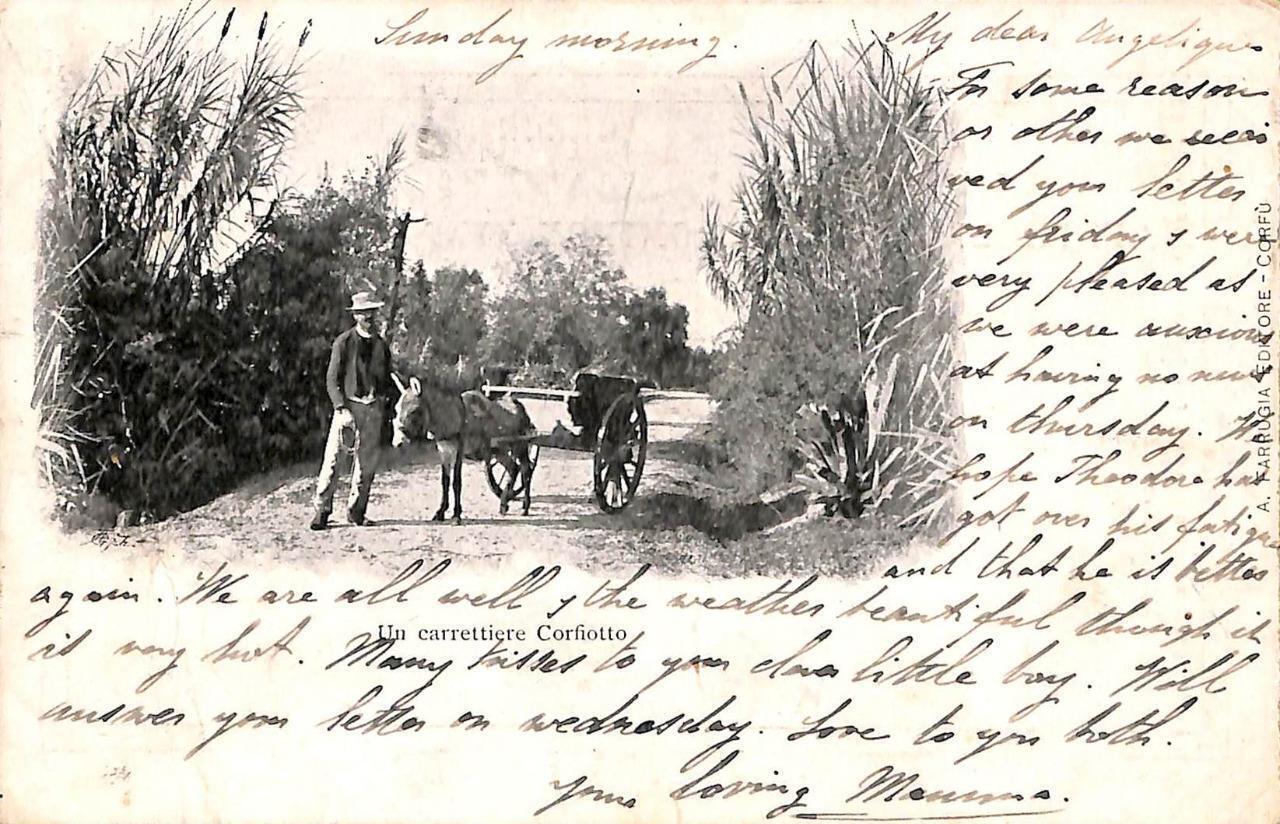 Sunday morning.
My dear Angelique
For some reason
or other we recei
ved your letter
on friday & were
very pleased as
we were anxious
at having no news
on thursday. We
hope Theodore has
got over his fatigue
and that he is better
again. We are all well & the weather beautiful though it
is very hot. Many kisses to your dear little boy. Will
answer your letter on wednesday. Love to you both.
Your loving Mamma.
Un carrettiere Corfiotto
A. FARRUGIA EDITORE - CORFÙ